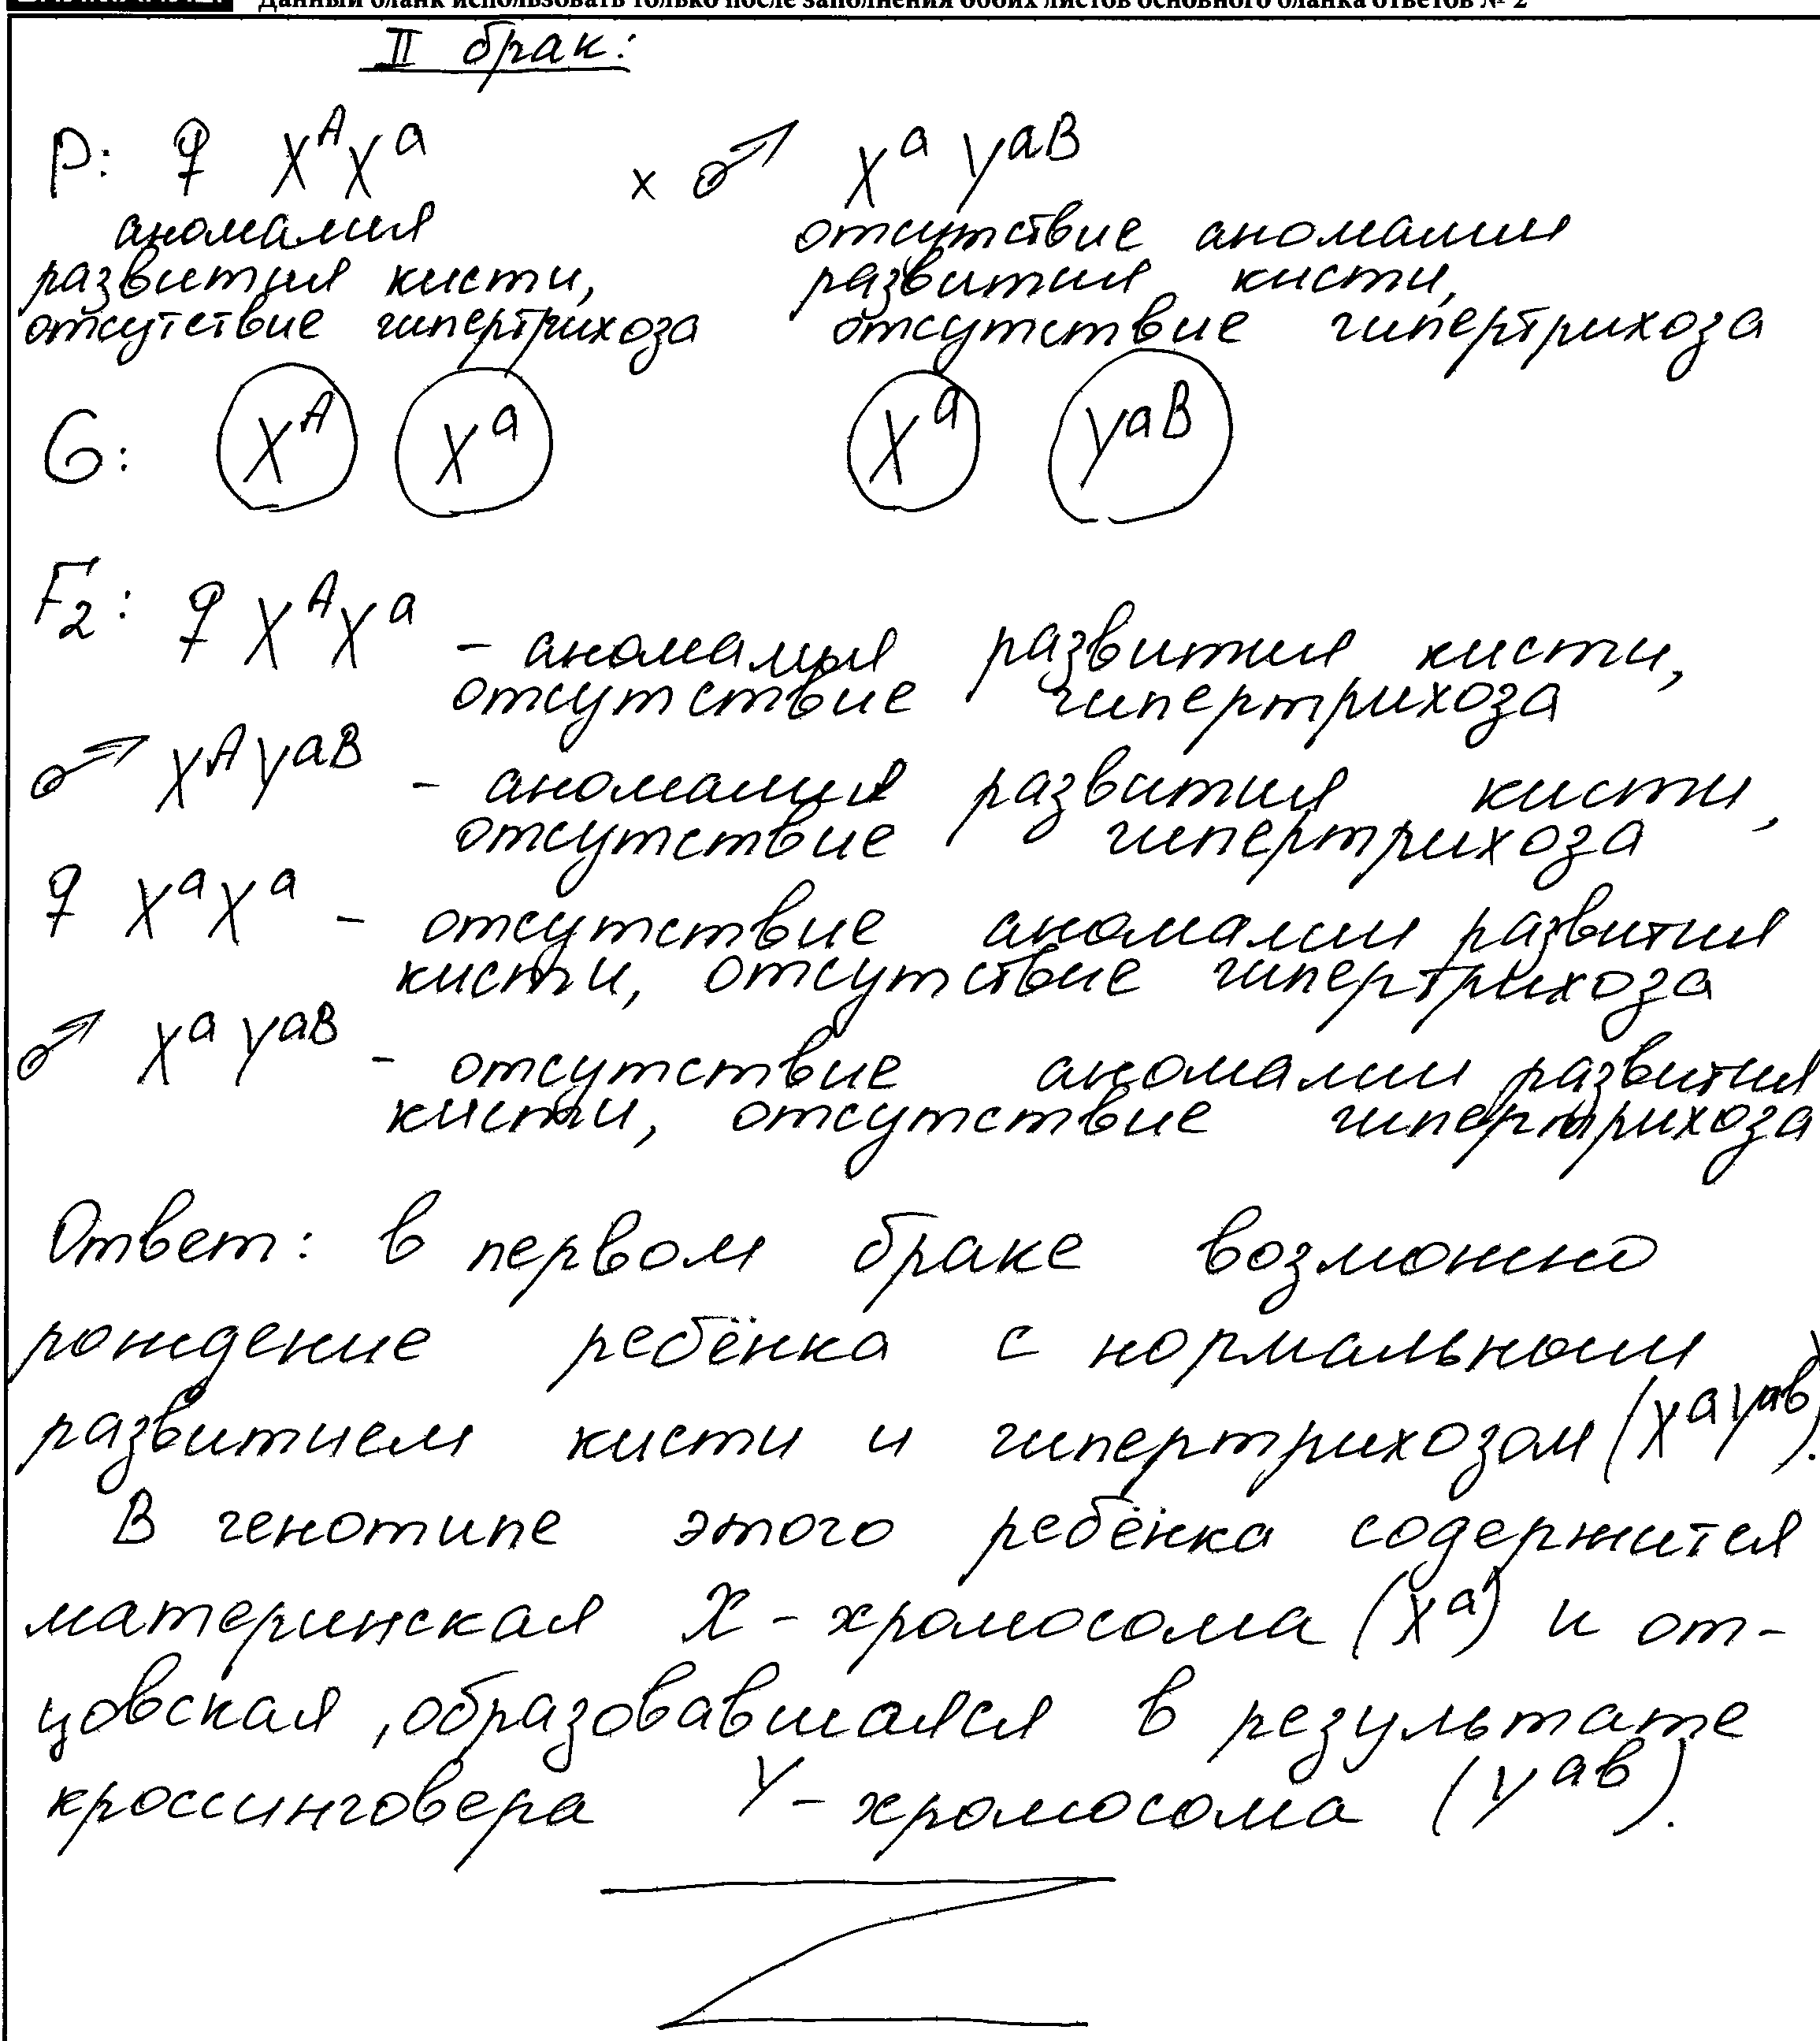 Данный бланк использовать только после заполнения обоих листов основного бланка ответов № 2
II брак:
P: ♀ XᴬXᵃ x ♂ XᵃYᵃᴮ
аномалия отсутствие аномалии
развития кисти, развития кисти,
отсутствие гипертрихоза отсутствие гипертрихоза
G: Xᴬ Xᵃ Xᵃ Yᵃᴮ
F₂: ♀ XᴬXᵃ - аномалия развития кисти,
отсутствие гипертрихоза
♂ XᴬYᵃᴮ - аномалия развития кисти,
отсутствие гипертрихоза
♀ XᵃXᵃ - отсутствие аномалии развития
кисти, отсутствие гипертрихоза
♂ XᵃYᵃᴮ - отсутствие аномалии развития
кисти, отсутствие гипертрихоза
Ответ: в первом браке возможно
рождение ребёнка с нормальным
развитием кисти и гипертрихозом (XᵃYᵃᵇ).
В генотипе этого ребёнка содержится
материнская X-хромосома (Xᵃ) и от-
цовская, образовавшаяся в результате
кроссинговера Y-хромосома (Yᵃᵇ).